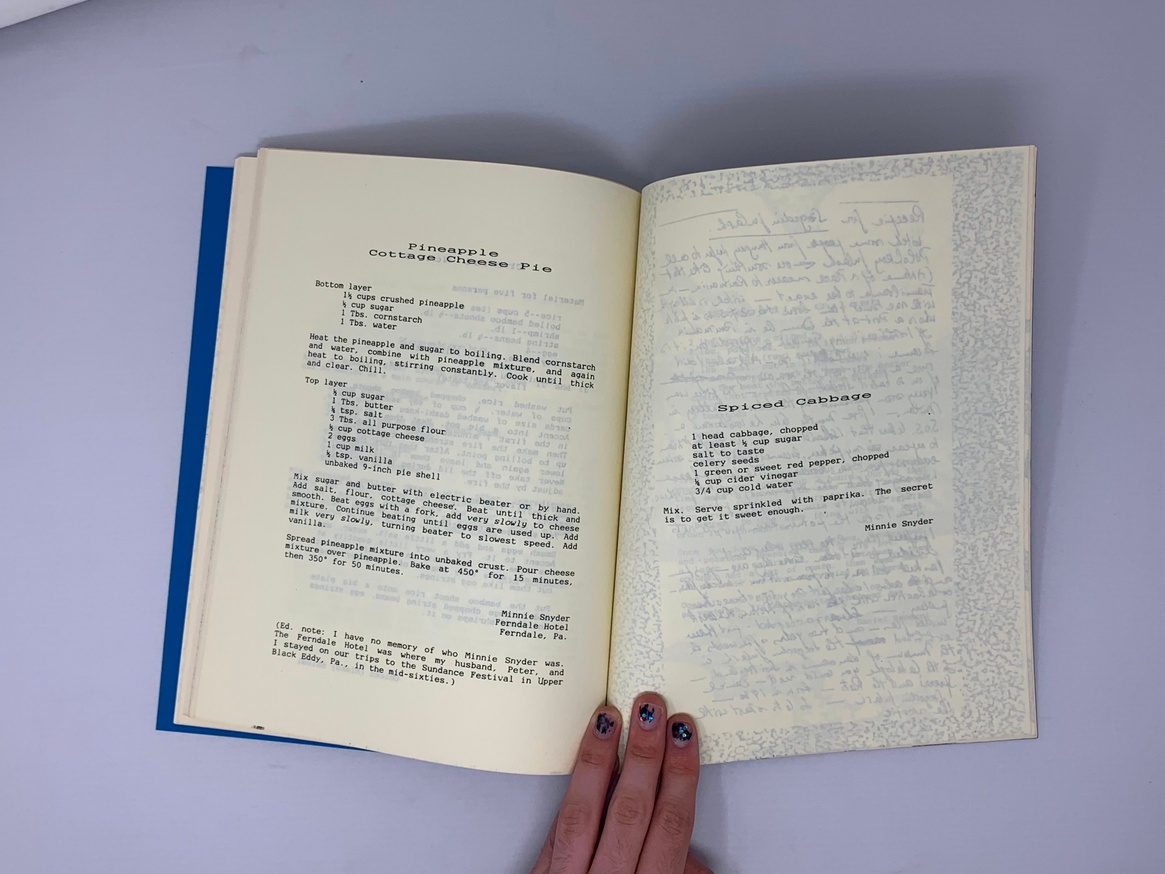 Pineapple
Cottage Cheese Pie
Bottom layer
1½ cups crushed pineapple
½ cup sugar
1 Tbs. cornstarch
1 Tbs. water
Heat the pineapple and sugar to boiling. Blend cornstarch
and water, combine with pineapple mixture, and again
heat to boiling, stirring constantly. Cook until thick
and clear. Chill.
Top layer
½ cup sugar
1 Tbs. butter
¼ tsp. salt
3 Tbs. all purpose flour
½ cup cottage cheese
2 eggs
1 cup milk
½ tsp. vanilla
unbaked 9-inch pie shell
Mix sugar and butter with electric beater or by hand.
Add salt, flour, cottage cheese. Beat until thick and
smooth. Beat eggs with a fork, add very slowly to cheese
mixture. Continue beating until eggs are used up. Add
milk very slowly, turning beater to slowest speed. Add
vanilla.
Spread pineapple mixture into unbaked crust. Pour cheese
mixture over pineapple. Bake at 450° for 15 minutes,
then 350° for 50 minutes.
Minnie Snyder
Ferndale Hotel
Ferndale, Pa.
(Ed. note: I have no memory of who Minnie Snyder was.
The Ferndale Hotel was where my husband, Peter, and
I stayed on our trips to the Sundance Festival in Upper
Black Eddy, Pa., in the mid-sixties.)
Spiced Cabbage
1 head cabbage, chopped
at least ½ cup sugar
salt to taste
celery seeds
1 green or sweet red pepper, chopped
cup cider vinegar
3/4 cup cold water
Mix. Serve sprinkled with paprika. The secret
is to get it sweet enough.
Minnie Snyder